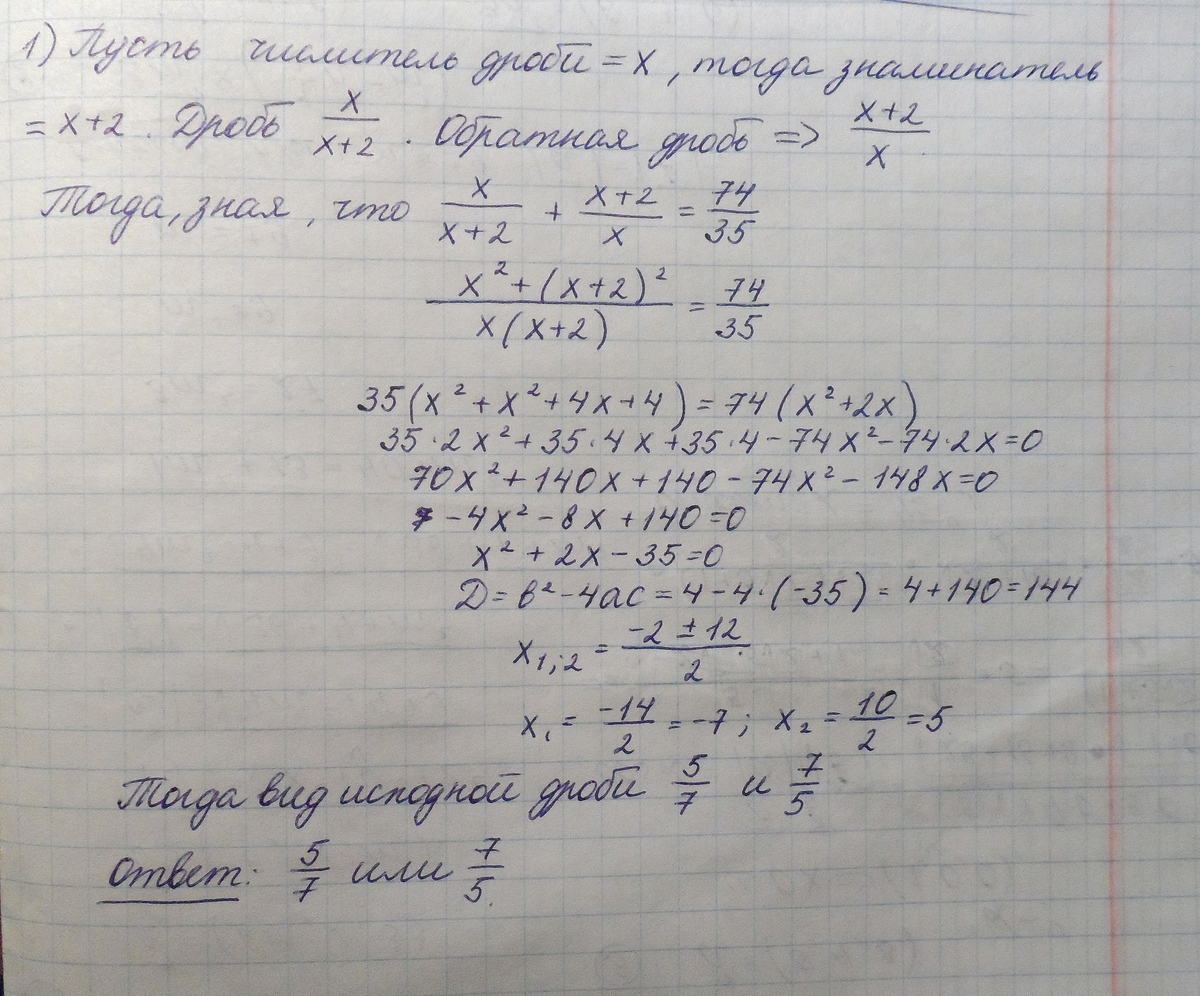 1) Пусть числитель дроби = x, тогда знаминатель
= x+2. Дробь x/(x+2). Обратная дробь => (x+2)/x.
Тогда, зная, что x/(x+2) + (x+2)/x = 74/35
(x²+(x+2)²)/(x(x+2)) = 74/35
35(x²+x²+4x+4) = 74(x²+2x)
35·2x²+35·4x+35·4-74x²-74·2x=0
70x²+140x+140-74x²-148x=0
-4x²-8x+140=0
x²+2x-35=0
D=b²-4ac=4-4·(-35)=4+140=144
x₁;₂ = (-2±12)/2.
x₁ = -14/2 = -7; x₂ = 10/2 = 5
Тогда вид исподной дроби 5/7 и 7/5.
Ответ: 5/7 или 7/5.